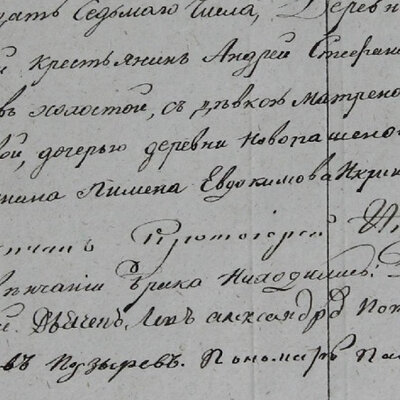 цать седьмаго числа, Деревн
й крестьянин Андрей Стефан
въ холостой, съ дѣвкою Матрено
вой, дочерью деревни Новопашено
нина Пимена Евдокимова
нчанъ Протоіерей
внчаніи брака находились:
й. Дьяченъ Александръ Пот
въ Пузыревъ. Пономарь Па